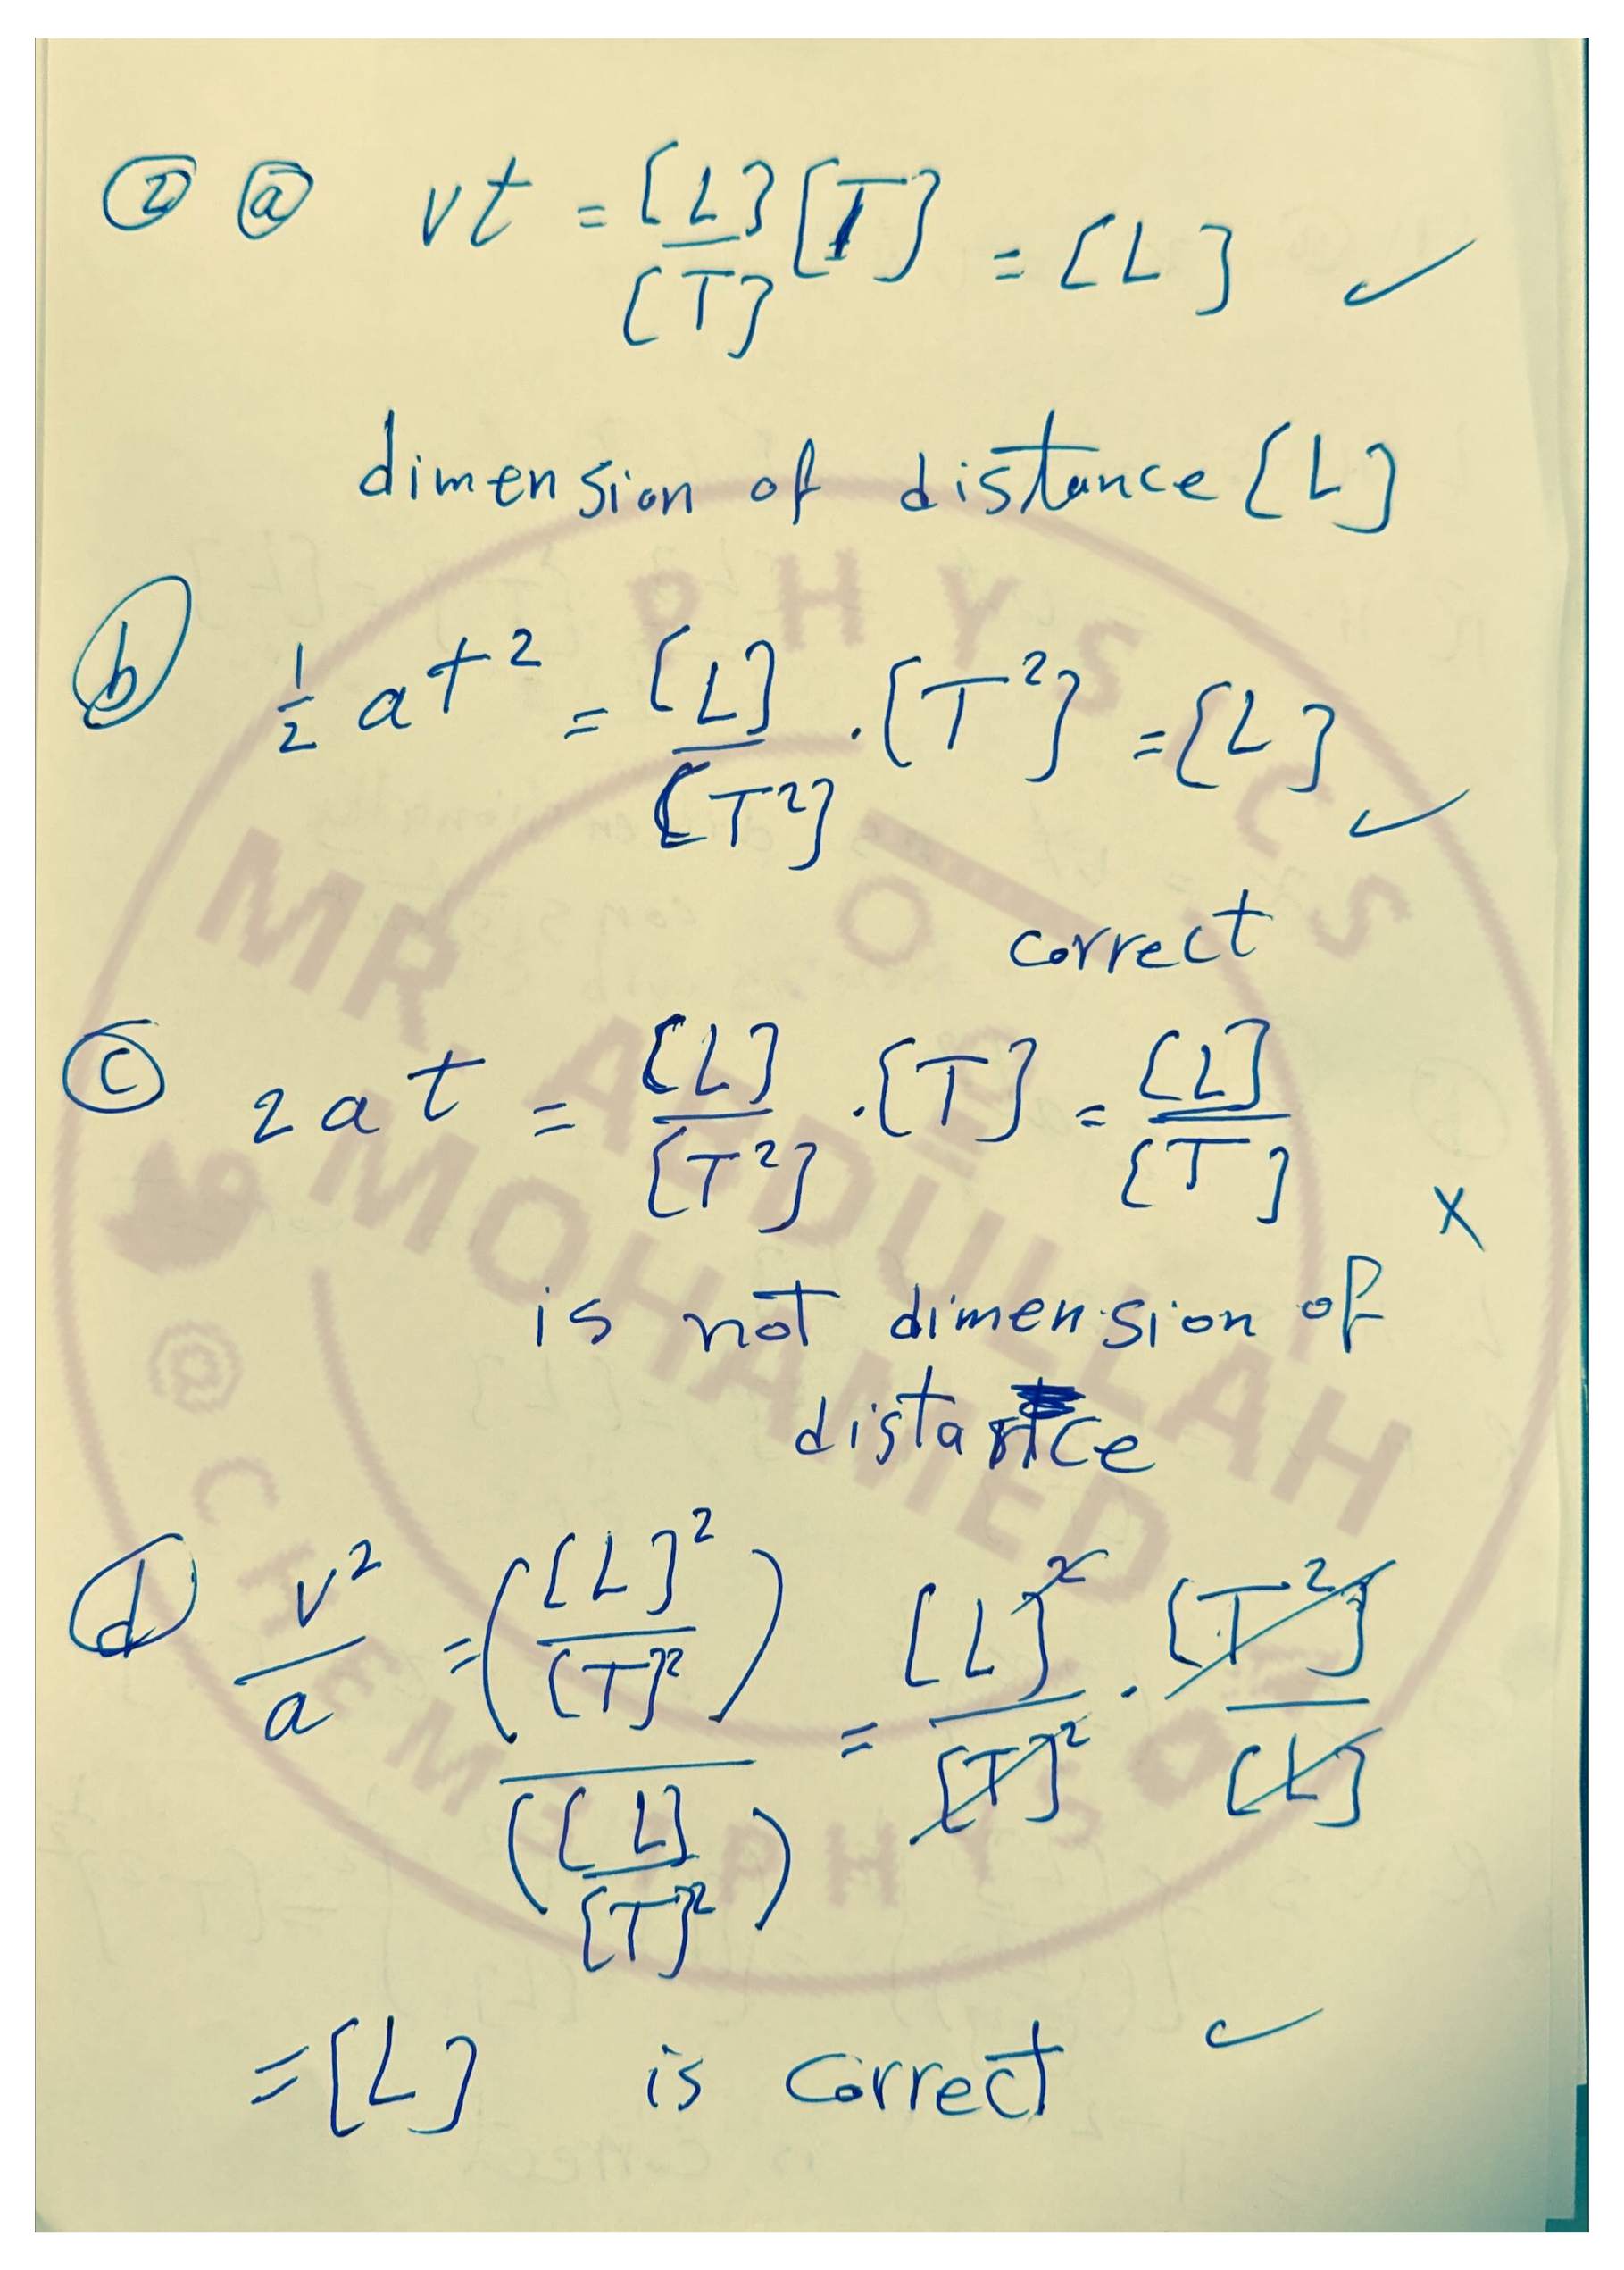 ② ⓐ vt = [L]/[T] [T] = [L] ✓
dimension of distance [L]
ⓑ 1/2 at² = [L]/[T²] · [T²] = [L] ✓
correct
ⓒ 2at = [L]/[T²] · [T] = [L]/[T] x
is not dimension of
distance
ⓓ v²/a = ([L]²/[T]²)/([L]/[T]²) = [L]²/[T]² · [T²]/[L]
= [L] is correct ✓
PHYSICS
MR. ABDULLAH
MOHAMED
@CHEMEPHYSO